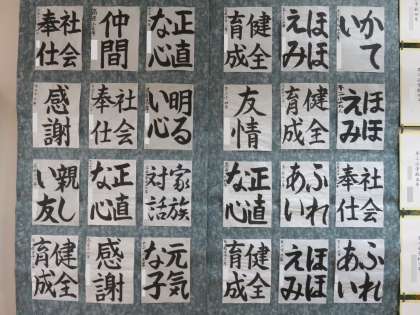 かて
い
ほほ
えみ
健全
育成
正直
な心
仲間
社会
奉仕
ほほ
えみ
健全
育成
友情
明る
い心
社会
奉仕
感謝
社会
奉仕
ふれ
あい
正直
な心
家族
対話
正直
な心
親し
い友
ふれ
あい
ほほ
えみ
健全
育成
元気
な子
感謝
健全
育成